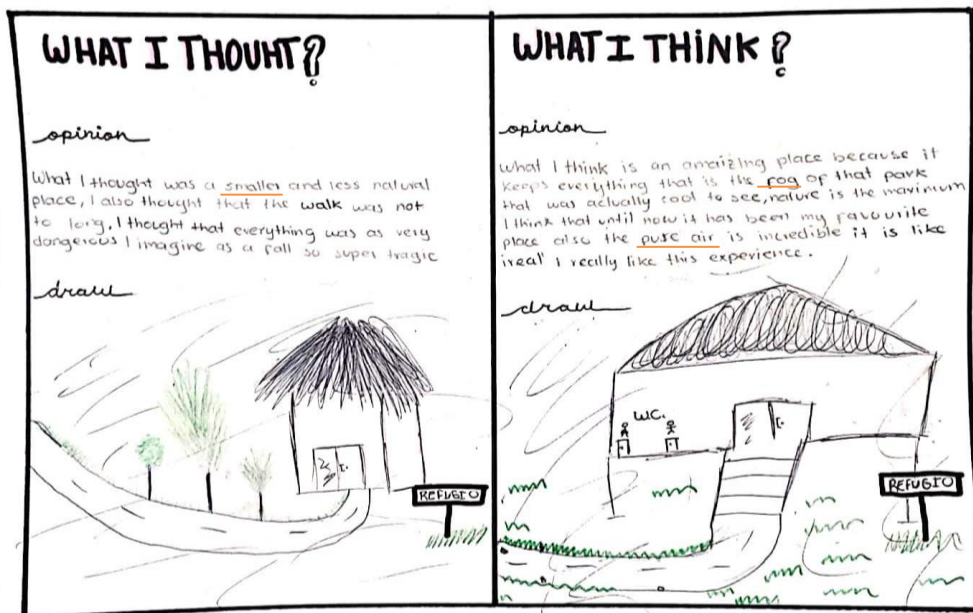 WHAT I THOUHT?
opinion
What I thought was a smaller and less natural
place, I also thought that the walk was not
to long, I thought that everything was as very
dangerous I imagine as a fall so super tragic
draw
REFUGIO
WHAT I THINK?
opinion
What I think is an amaizing place because it
keeps everything that is the fog of that park
that was actually cool to see, nature is the maximum
I think that until now it has been my favourite
place also the pure air is incredible it is like
'real' I really like this experience.
draw
WC.
REFUGIO